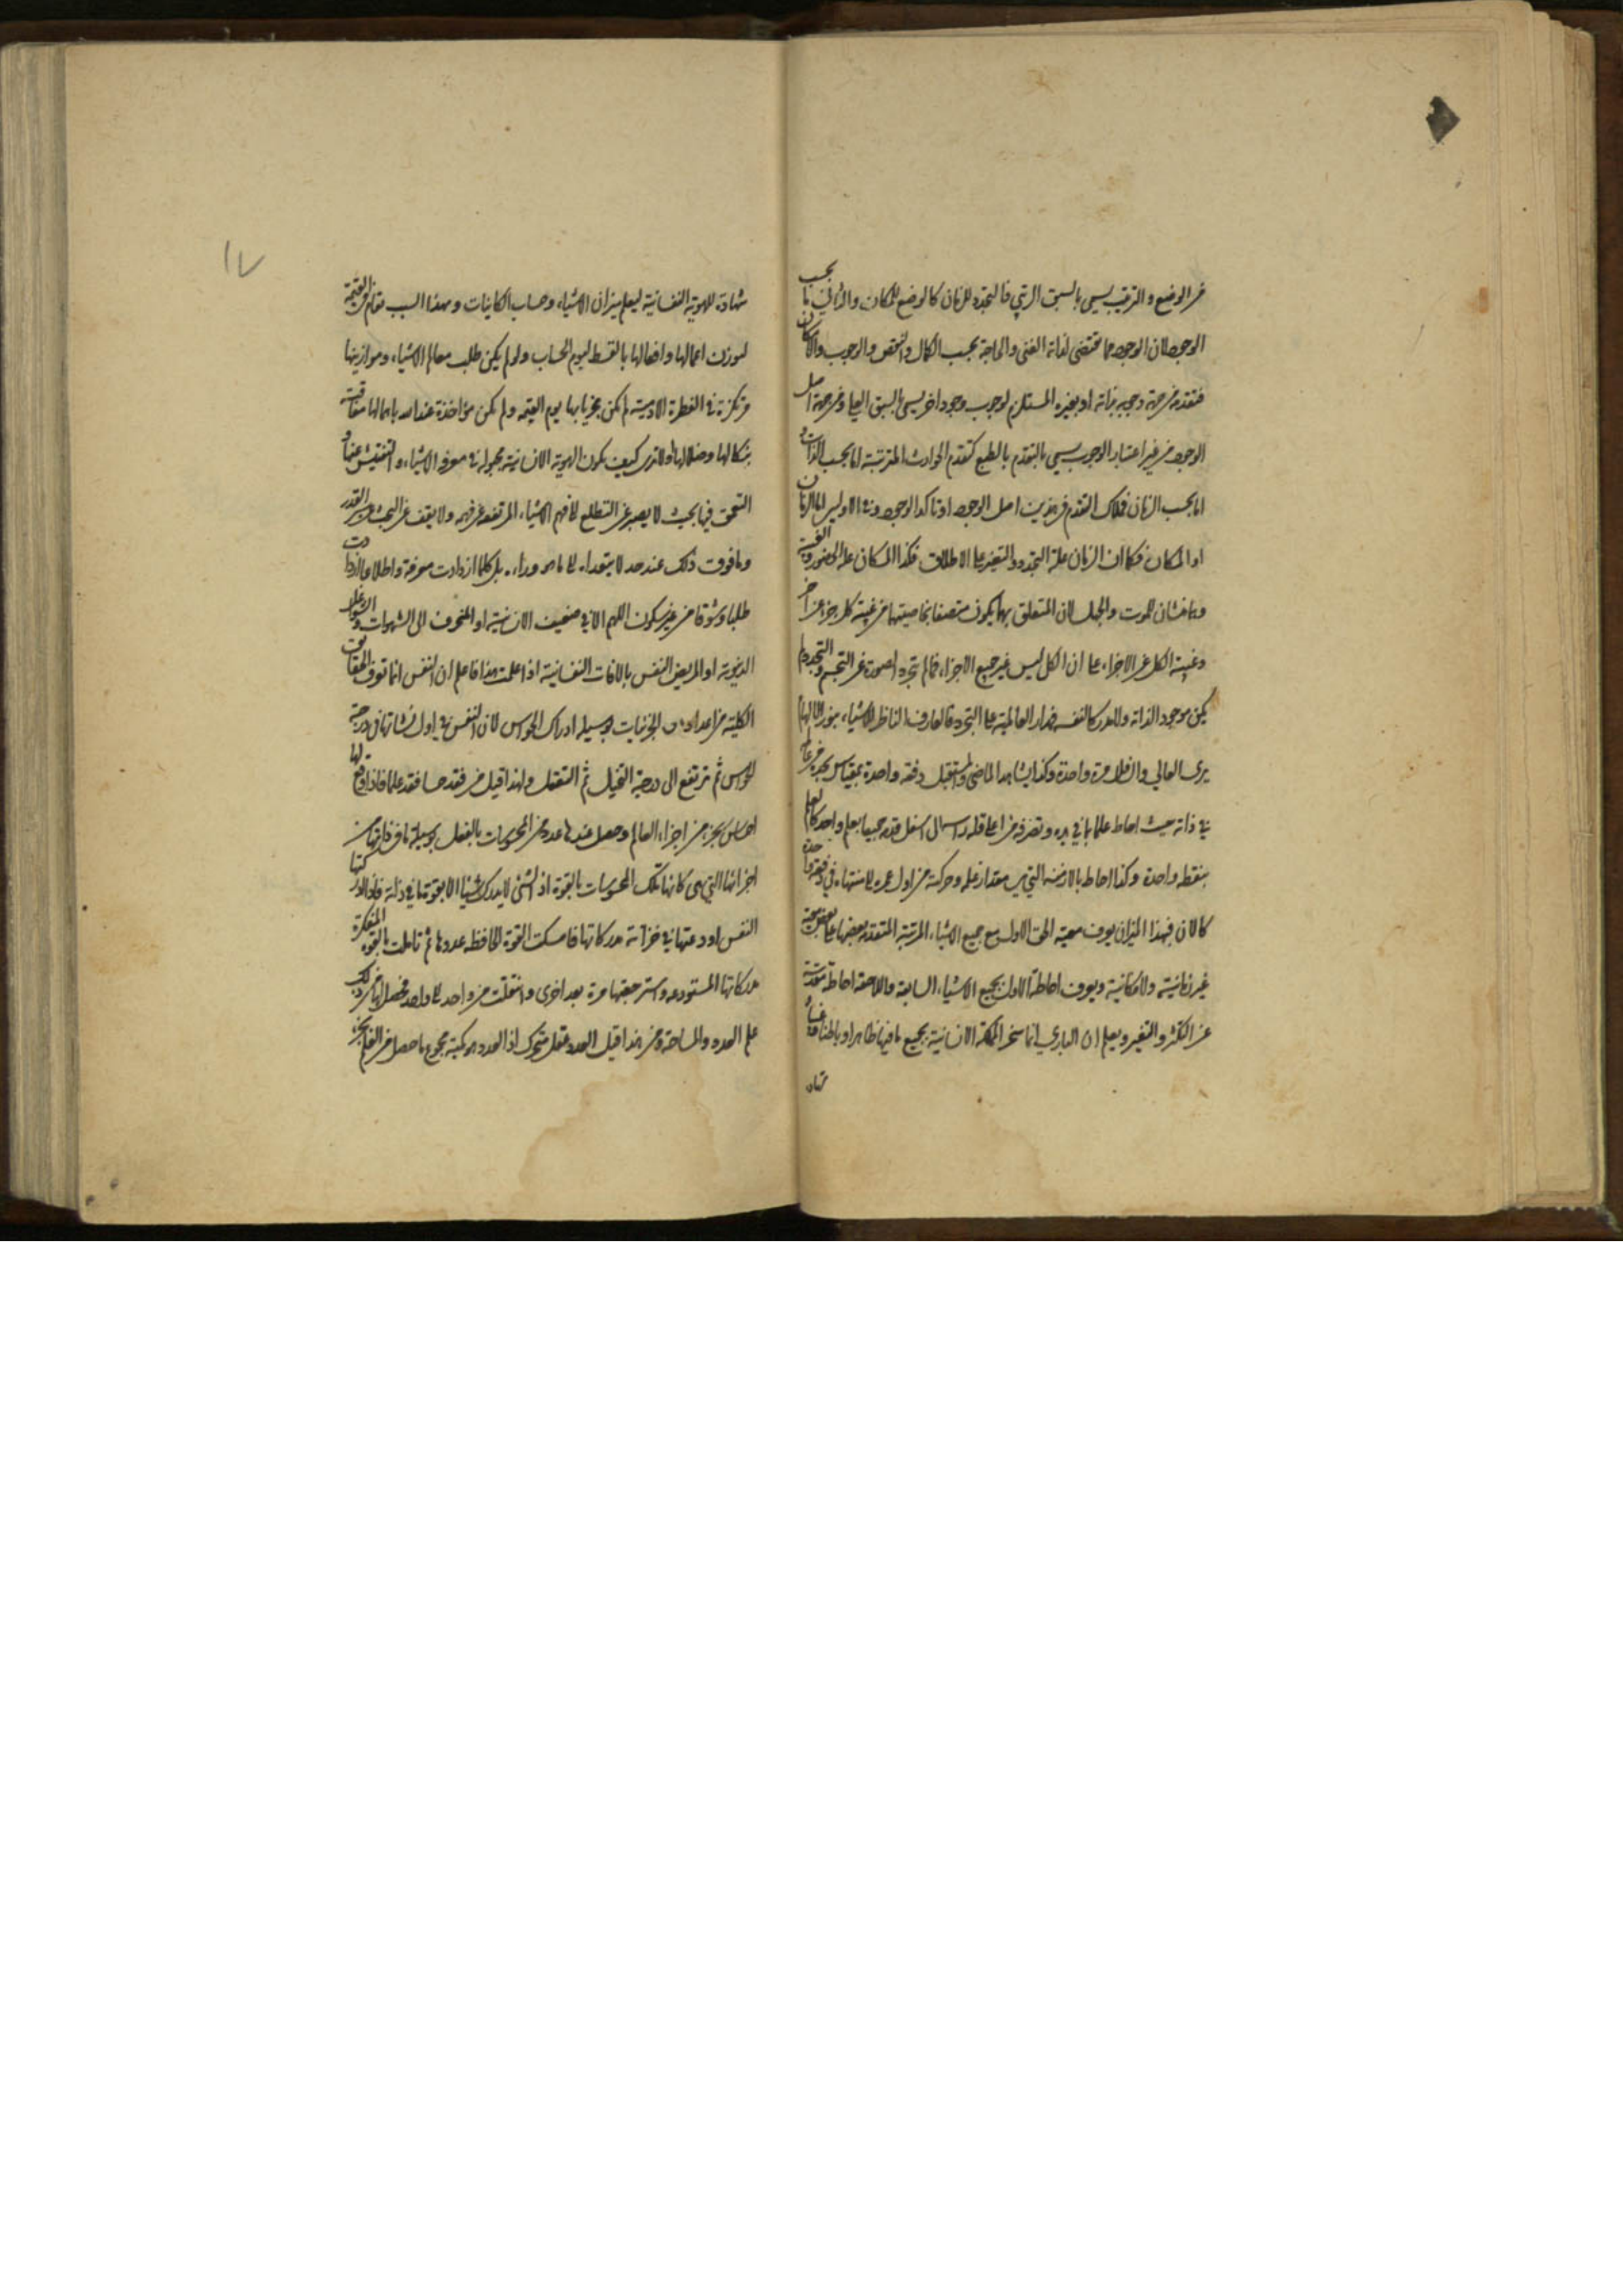 عن الوضع والترتيب يسمى بالسبق الرتبي فالتجدد للزمان كالوضع للمكان والثاني ما بحسب
الوجود لان الوجود مما يقتضى لذاته الغنى والحاجة بحسب الكمال والنقص والوجوب والامكان
فتقدمه من جهة وجوبه بذاته او بغيره المستلزم لوجوب وجود اخر يسمى بالسبق العلى ومن جهة اصل
الوجود من غير اعتبار الوجوب يسمى بالتقدم بالطبع كتقدم الحوادث المترتبة اما بحسب الذات و
اما بحسب الزمان فملاك التقدم في هذين اصل الوجود او تاكد الوجود وفي الاولين اما الزمان
او المكان فكما ان الزمان علة التجدد والتغير على الاطلاق فكذا المكان علة الحضور والغيبة
وهما منشان للموت والجهل لان المتعلق بهما يكون متصفا بخاصيتهما من غيبة كل جزء عن اخر
وغيبة الكل عن الاجزاء على ان الكل ليس غير جميع الاجزاء فما لم يتجرد الصورة عن التجسم والتجدد لم
يكن موجود الذاته والمدرك النفس فمدار العالمية على التجرد فالعارف الناظر للاشياء بنور الالهام
يرى العالي والسافل مرة واحدة وكذا يشاهد الماضى والمستقبل دفعة واحدة بمقياس يجده من عالمه
في ذاته حيث احاط علما بما في يده وتصرفه من اعلى قلة راسه الى اسفل قدمه جميعا بعلم واحد كالعلم
بنقطه واحدة وكذا احاط بالازمنه التي هي مقدار فعله وحركته من اول عمره الى منتهاه في دفعة واحدة
كالان فبهذا الميزان يعرف معية الحق الاول مع جميع الاشياء المرتبة المتقدمه بعضها على بعض معية
غير زمانية ولا مكانية ويعرف احاطة الاول بجميع الاشياء السابقة واللاحقة احاطة مقدسة
عن الكثر والتغير ويعلم ان الباري انما سخر المملكة الانسانية بجميع ما فيها ظاهرا وباطنا
شهاد
١٧
شهادة للهوية النفسانية ليعلم ميزان الاشياء وحساب الكاينات وبهذا السبب مقام في القيمة
لوزن اعمالها وافعالها بالقسط ليوم الحساب ولو لم يكن طلب معالم الاشياء وموازينها
مرتكزة في الفطرة الادمية لم تكن مجزيا بها يوم القيمة ولم تكن مؤاخذة عند الله باهمالها معاقبة
بنكالها وضلالها اولا ترى كيف يكون الهوية الانسانية مجبولة في معرفة الاشياء والتفتيش عنها و
التعمق فيها بحيث لا يصبر عن التطلع لما فهم الاشياء المرتفعة عن فهمه ولا يقف عن البحث
وما فوق ذلك عند حد لا يتعداه الى ما هو وراءه بل كلما ازدادت معرفة واطلاعا ازدادت
طلبا وشوقا من غير سكون اللهم الا في ضعيف الانسانية او المنحرف الى الشهوات والشواغل
الدنيوية او المريض النفس بالافات النفسانية اذا علمت هذا فاعلم ان النفس انما تعرف الحقايق
الكلية من اعداد الجزئيات بوسيلة ادراك الحواس لان النفس في اول نشاتها في درجة
الحواس ثم ترتفع الى درجة التخيل ثم التعقل ولهذا قيل من فقد حسا فقد علما فاذا وقع لها
احساس بجزء من اجزاء العالم وحصل عندها عدد من المحسوسات بالفعل بوسيلة ما في ذاتها من
اجزائها التي هي كانها تلك المحسوسات بالقوة اذ الشئ لا يدرك شيئا الا بقوة ما في ذاته فاذا ادركتها
النفس اودعتها في خزانة مدركاتها فامسكت القوة الحافظه عددها ثم تاملت بالقوة المتفكرة
مدركاتها المستودعه واسترجعتها مرة بعد اخرى وانتقلت من واحد الى واحد فحصل لها من ذلك
علم العدد والمساحة ومن هذا قيل العدد عقل متحرك اذ العدد هو كمية مجموع ما حصل من العلم بجزء